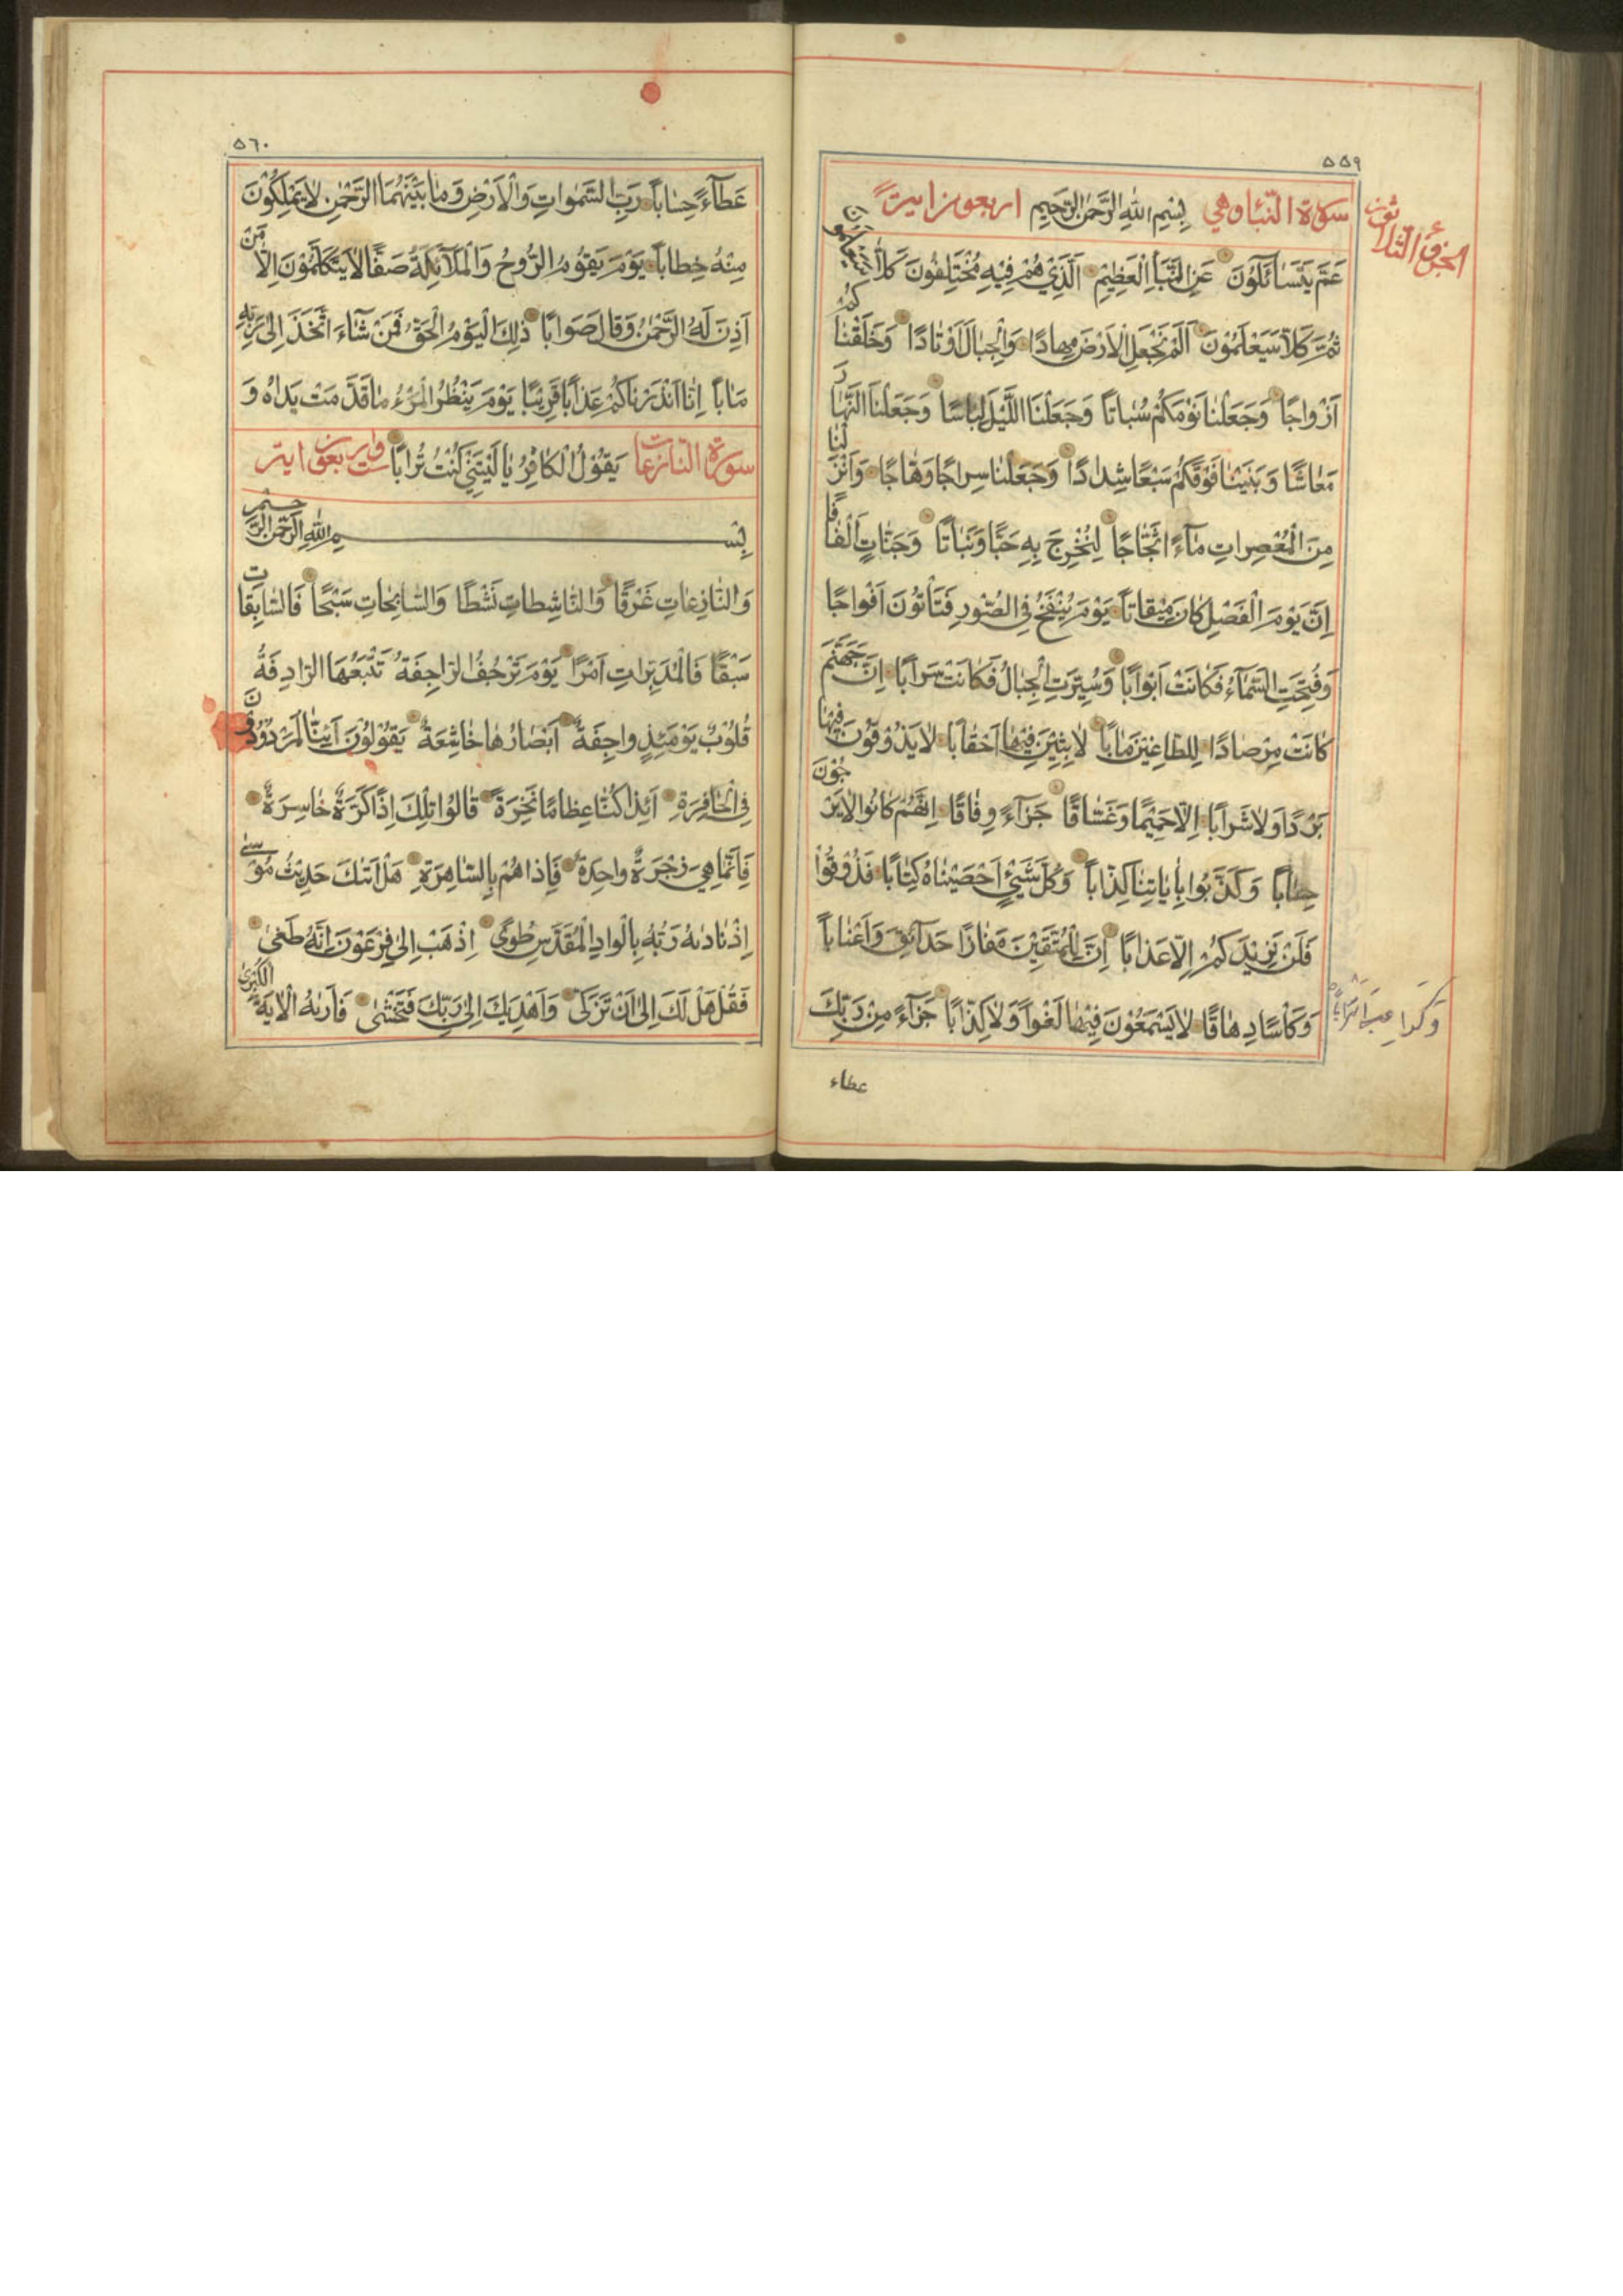 ٥٥٩
الجزؤ الثلاثون
سورة النبأ وهي بِسْمِ اللهِ الرَّحْمٰنِ الرَّحِيمِ اربعون اية
عَمَّ يَتَسَائَلُونَ عَنِ النَّبَأِ الْعَظِيْمِ اَلَّذِيْ هُمْ فِيْهِ مُخْتَلِفُونَ كَلَّا سَيَعْلَمُونَ
ثُمَّ كَلَّا سَيَعْلَمُوْنَ اَلَمْ نَجْعَلِ الْاَرْضَ مِهَادًا وَالْجِبَالَ اَوْتَادًا وَخَلَقْنَاكُمْ
اَزْوَاجًا وَجَعَلْنَا نَوْمَكُمْ سُبَاتًا وَجَعَلْنَا اللَّيْلَ لِبَاسًا وَجَعَلْنَا النَّهَارَ
مَعَاشًا وَبَنَيْنَا فَوْقَكُمْ سَبْعًا شِدَادًا وَجَعَلْنَا سِرَاجًا وَهَّاجًا وَاَنْزَلْنَا
مِنَ الْمُعْصِرَاتِ مَآءً ثَجَّاجًا لِنُخْرِجَ بِهِ حَبًّا وَنَبَاتًا وَجَنَّاتٍ اَلْفَافًا
اِنَّ يَوْمَ الْفَصْلِ كَانَ مِيْقَاتًا يَوْمَ يُنْفَخُ فِي الصُّوْرِ فَتَأْتُوْنَ اَفْوَاجًا
وَفُتِحَتِ السَّمَآءُ فَكَانَتْ اَبْوَابًا وَسُيِّرَتِ الْجِبَالُ فَكَانَتْ سَرَابًا اِنَّ جَهَنَّمَ
كَانَتْ مِرْصَادًا لِلطَّاغِيْنَ مَاٰبًا لَابِثِيْنَ فِيْهَا اَحْقَابًا لَا يَذُوْقُوْنَ فِيْهَا
بَرْدًا وَلَا شَرَابًا اِلَّا حَمِيْمًا وَغَسَّاقًا جَزَآءً وِفَاقًا اِنَّهُمْ كَانُوا لَا يَرْجُوْنَ
حِسَابًا وَكَذَّبُوا بِاٰيَاتِنَا كِذَّابًا وَكُلَّ شَيْءٍ اَحْصَيْنَاهُ كِتَابًا فَذُوْقُوْا
فَلَنْ نَزِيْدَكُمْ اِلَّا عَذَابًا اِنَّ لِلْمُتَّقِيْنَ مَفَازًا حَدَآئِقَ وَاَعْنَابًا
وَكَوَاعِبَ اَتْرَابًا
وَكَأْسًا دِهَاقًا لَا يَسْمَعُوْنَ فِيْهَا لَغْوًا وَلَا كِذَّابًا جَزَآءً مِنْ رَبِّكَ
عطاء
٥٦٠
عَطَآءً حِسَابًا رَبِّ السَّمٰوَاتِ وَالْاَرْضِ وَمَا بَيْنَهُمَا الرَّحْمٰنِ لَا يَمْلِكُوْنَ
مِنْهُ خِطَابًا يَوْمَ يَقُوْمُ الرُّوْحُ وَالْمَلَآئِكَةُ صَفًّا لَا يَتَكَلَّمُوْنَ اِلَّا مَنْ
اَذِنَ لَهُ الرَّحْمٰنُ وَقَالَ صَوَابًا ذٰلِكَ الْيَوْمُ الْحَقُّ فَمَنْ شَآءَ اتَّخَذَ اِلٰى رَبِّهِ
مَاٰبًا اِنَّا اَنْذَرْنَاكُمْ عَذَابًا قَرِيْبًا يَوْمَ يَنْظُرُ الْمَرْءُ مَا قَدَّمَتْ يَدَاهُ وَ
سورة النازعات يَقُوْلُ الْكَافِرُ يَا لَيْتَنِيْ كُنْتُ تُرَابًا ست واربعون اية
بِسْمِ اللهِ الرَّحْمٰنِ الرَّحِيْمِ
وَالنَّازِعَاتِ غَرْقًا وَالنَّاشِطَاتِ نَشْطًا وَالسَّابِحَاتِ سَبْحًا فَالسَّابِقَاتِ
سَبْقًا فَالْمُدَبِّرَاتِ اَمْرًا يَوْمَ تَرْجُفُ الرَّاجِفَةُ تَتْبَعُهَا الرَّادِفَةُ
قُلُوْبٌ يَوْمَئِذٍ وَاجِفَةٌ اَبْصَارُهَا خَاشِعَةٌ يَقُوْلُوْنَ اَئِنَّا لَمَرْدُوْدُوْنَ
فِي الْحَافِرَةِ اَئِذَا كُنَّا عِظَامًا نَخِرَةً قَالُوْا تِلْكَ اِذًا كَرَّةٌ خَاسِرَةٌ
فَاِنَّمَا هِيَ زَجْرَةٌ وَاحِدَةٌ فَاِذَا هُمْ بِالسَّاهِرَةِ هَلْ اَتٰىكَ حَدِيْثُ مُوْسٰى
اِذْ نَادٰىهُ رَبُّهُ بِالْوَادِ الْمُقَدَّسِ طُوًى اِذْهَبْ اِلٰى فِرْعَوْنَ اِنَّهُ طَغٰى
فَقُلْ هَلْ لَكَ اِلٰى اَنْ تَزَكّٰى وَاَهْدِيَكَ اِلٰى رَبِّكَ فَتَخْشٰى فَاَرٰىهُ الْاٰيَةَ الْكُبْرٰى